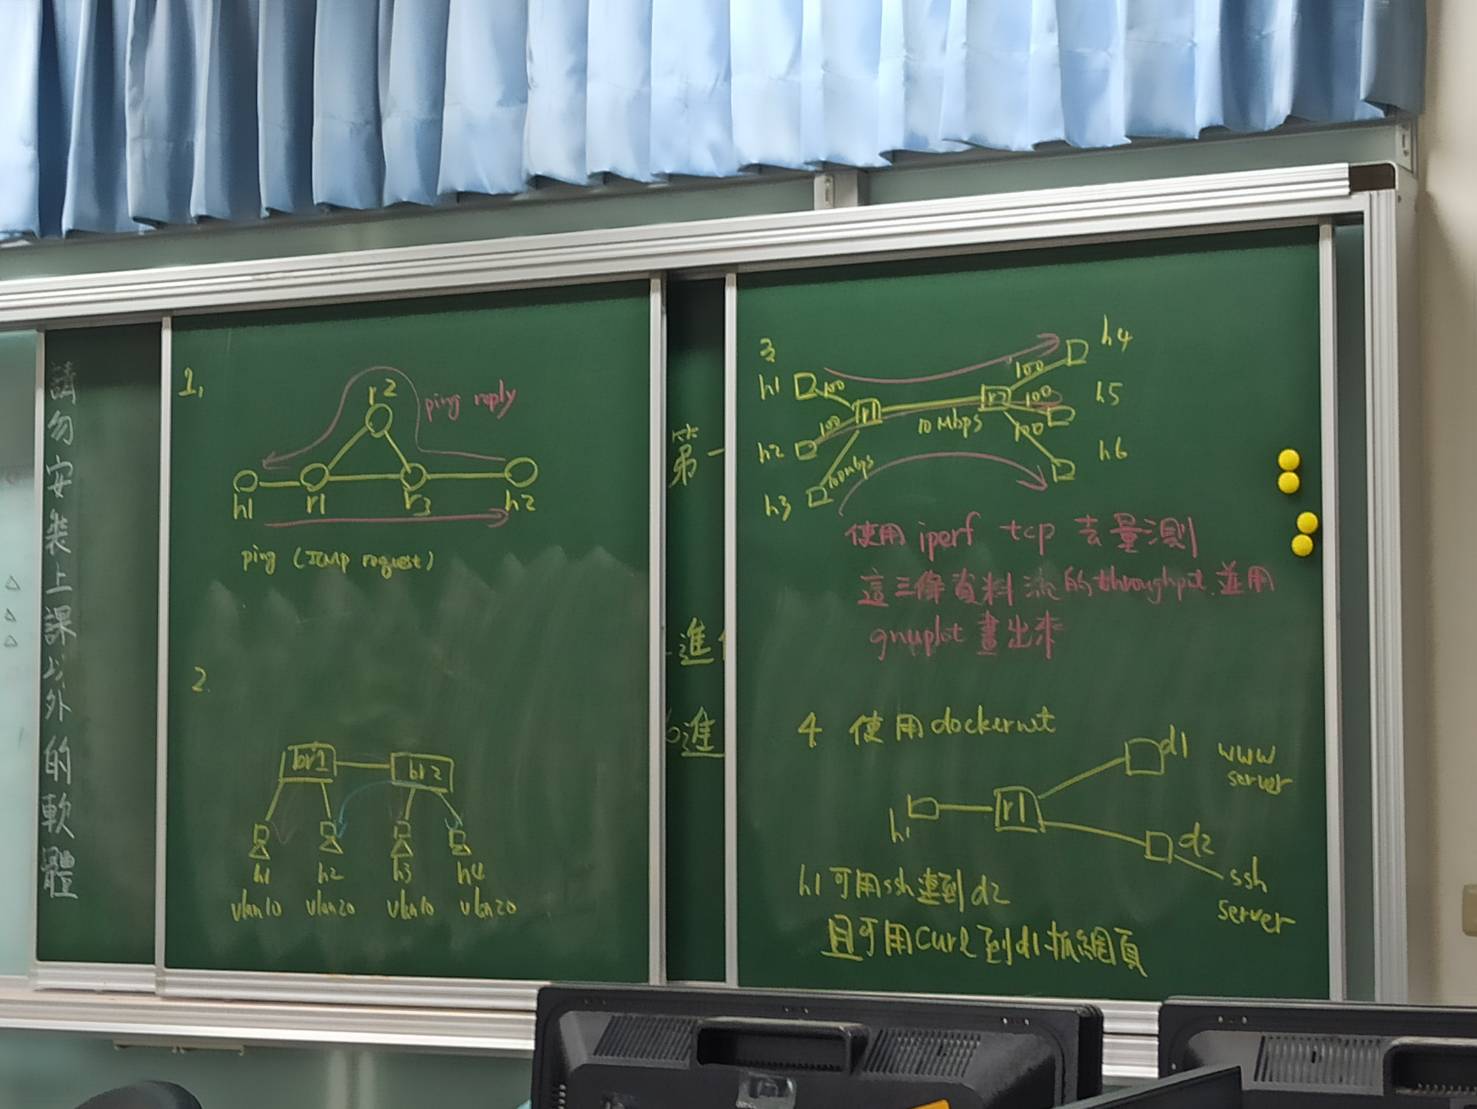 請勿安裝上課以外的軟體
1.
r2
ping reply
h1
r1
r3
h2
ping (ICMP request)
2.
br1
br2
h1
h2
h3
h4
vlan10
vlan20
vlan10
vlan20
第一
進
進
3.
h1
100
r1
h2
100
h3
100Mbps
10Mbps
r2
100
h4
100
h5
100
h6
使用 iperf tcp 去量測
這三條資料流的throughput 並用
gnuplot 畫出來
4. 使用dockernet
h1
r1
d1
www
server
d2
ssh
server
h1可用ssh連到d2
且可用curl到d1抓網頁